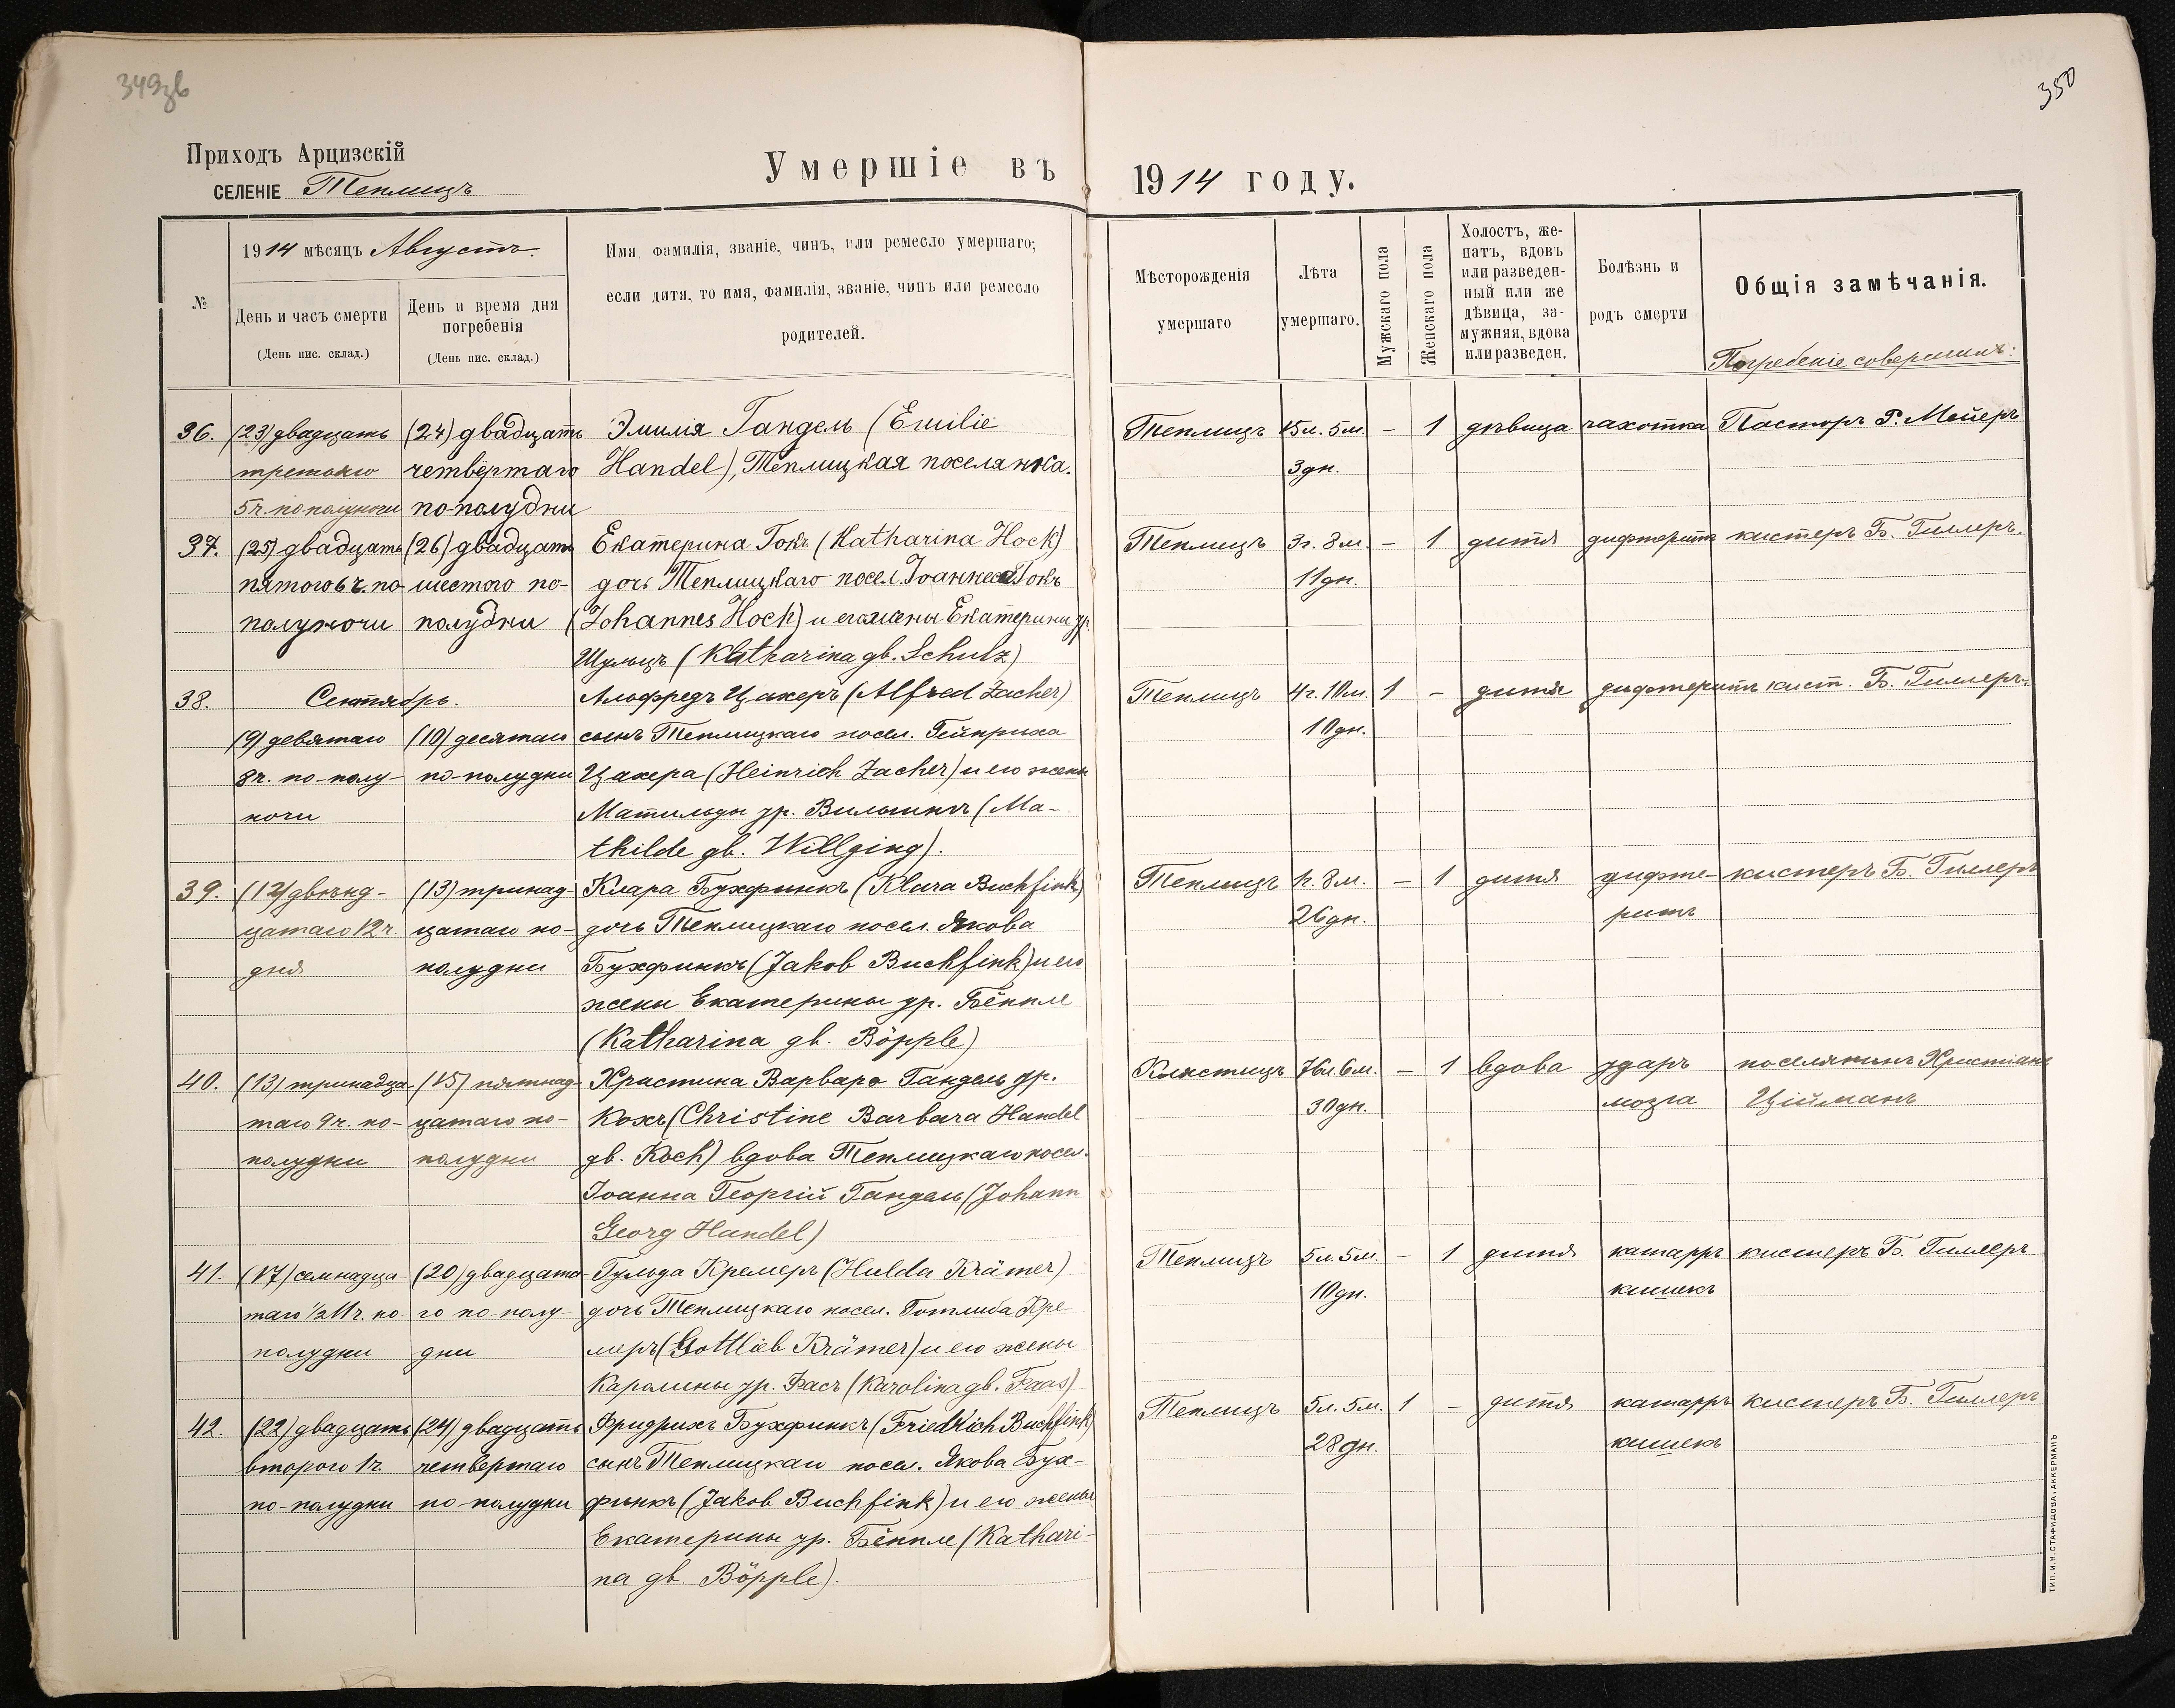 349зв
350
Приходъ Арцизскій
СЕЛЕНІЕ Теплицъ
Умершіе въ 1914 году.
№
1914 мѣсяцъ Августъ.
День и часъ смерти
(День пис. склад.)
День и время дня
погребенія
(День пис. склад.)
Имя, фамилія, званіе, чинъ, или ремесло умершаго;
если дитя, то имя, фамилія, званіе, чинъ или ремесло
родителей.
Мѣсторожденія
умершаго
Лѣта
умершаго.
Мужскаго пола
Женскаго пола
Холостъ, же-
натъ, вдовъ
или разведен-
ный или же
дѣвица, за-
мужняя, вдова
или разведен.
Болѣзнь и
родъ смерти
Общія замѣчанія.
Погребеніе совершилъ:
36. (23) двадцать (24) двадцать Эмилія Гандель (Emilie Теплицъ 15л. 5м. – 1 дѣвица чахотка Пасторъ Р. Мейеръ
третьяго четвёртаго Handel), Теплицкая поселянка. 3дн.
5ч. по полуночи по-полудни
37. (25) двадцать (26) двадцать Екатерина Гокъ (Katharina Hock) Теплицъ 3г. 8м. – 1 дитя дифтеритъ кистеръ Б. Гиллеръ.
пятого 6 ч. по- шестого по- дочь Теплицкаго посел. Іоаннеса Гокъ 11дн.
полуночи полудни (Johannes Hock) и его жены Екатерины ур.
Шульцъ (Katharina gb. Schulz)
38. Сентябрь. Альфредъ Цахеръ (Alfred Zacher) Теплицъ 4г. 10м. 1 – дитя дифтеритъ кист. Б. Гиллеръ.
(9) девятаго (10) десятаго сынъ Теплицкаго посел. Гейнриха 10дн.
8ч. по-полу- по-полудни Цахера (Heinrich Zacher) и его жены
ночи Матильды ур. Вильгингъ (Ma-
thilde gb. Willging).
39. (12) двѣнд- (13) тринад- Клара Бухфинкъ (Klara Buchfink) Теплицъ 1г. 8м. – 1 дитя дифте- кистеръ Б. Гиллеръ
цатаго 12ч. цатаго по- дочь Теплицкаго посел. Якова 26дн. ритъ
дня полудни Бухфинкъ (Jakob Buchfink) и его
жены Екатерины ур. Бёппле
(Katharina gb. Böpple)
40. (13) тринадца- (15) пятнад- Христина Варвара Гандель ур. Кластицъ 76л. 6м. – 1 вдова ударъ поселянинъ Христіанъ
таго 9ч. по- цатаго по- Кохъ (Christine Barbara Handel 30дн. мозга Ційманъ
полудни полудни gb. Koch) вдова Теплицкаго посел.
Іоанна Георгій Гандель (Johann
Georg Handel)
41. (17) семнадца- (20) двадцата- Гульда Кремеръ (Hulda Krämer) Теплицъ 5л. 5м. – 1 дитя катарръ кистеръ Б. Гиллеръ
таго ½11ч. по- го по-полу- дочь Теплицкаго посел. Готлиба Кре- 10дн. кишекъ
полудни дни меръ (Gottlieb Krämer) и его жены
Каролины ур. Фасъ (Karolina gb. Faas)
42. (22) двадцать (24) двадцать Фридрихъ Бухфинкъ (Friedrich Buchfink) Теплицъ 5л. 5м. 1 – дитя катарръ кистеръ Б. Гиллеръ
второго 1ч. четвёртаго сынъ Теплицкаго посел. Якова Бух- 28дн. кишекъ
по-полудни по-полудни финкъ (Jakob Buchfink) и его жены
Екатерины ур. Бёппле (Kathari-
na gb. Böpple).
ТИП. И. Н. СТАФИДОВА · АККЕРМАНЪ